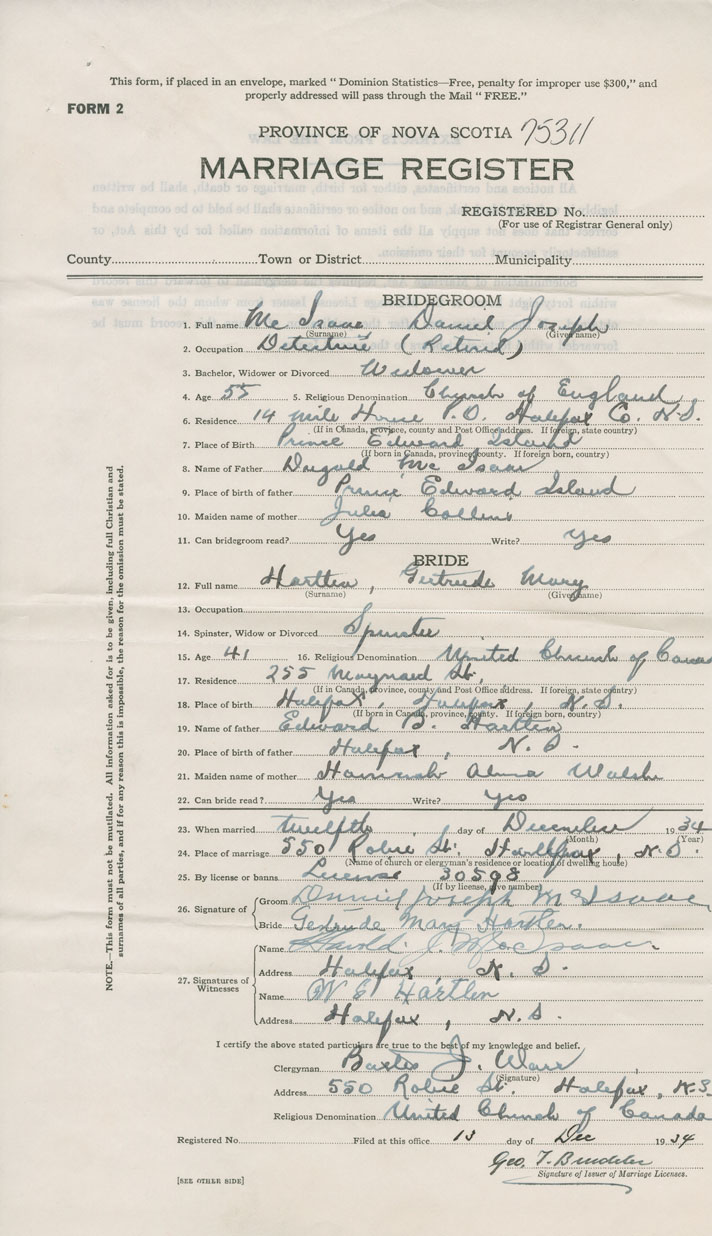 This form, if placed in an envelope, marked " Dominion Statistics—Free, penalty for improper use $300," and
properly addressed will pass through the Mail " FREE."
FORM 2
PROVINCE OF NOVA SCOTIA 75311
MARRIAGE REGISTER
REGISTERED No.
(For use of Registrar General only)
County Town or District Municipality
BRIDEGROOM
1. Full name Mc Isaac Daniel Joseph
(Surname) (Given name)
2. Occupation Detective (Retired)
3. Bachelor, Widower or Divorced Widower
4. Age 55 5. Religious Denomination Church of England
6. Residence 14 mile House P.O. Halifax Co. N.S.
(If in Canada, province, county and Post Office address. If foreign, state country)
7. Place of Birth Prince Edward Island
(If born in Canada, province, county. If foreign born, country)
8. Name of Father Dugald Mc Isaac
9. Place of birth of father Prince Edward Island
10. Maiden name of mother Julia Collins
11. Can bridegroom read? Yes Write? Yes
BRIDE
12. Full name Hartlen, Gertrude Mary
(Surname) (Given name)
13. Occupation
14. Spinster, Widow or Divorced Spinster
15. Age 41 16. Religious Denomination United Church of
17. Residence 255 Maynard St.
(If in Canada, province, county and Post Office address. If foreign, state country)
18. Place of birth Halifax, Halifax, N.S.
(If born in Canada, province, county. If foreign born, country)
19. Name of father Edward B. Hartlen
20. Place of birth of father Halifax, N.S.
21. Maiden name of mother Hannah Alma Walsh
22. Can bride read? Yes Write? Yes
23. When married twelfth, day of December 1934
(Month) (Year)
24. Place of marriage 550 Robie St. Halifax, N.S.
(Name of church or clergyman's residence or location of dwelling house)
25. By license or banns License 30598
(If by license, give number)
26. Signature of Groom Daniel Joseph McIsaac
Bride Gertrude Mary Hartlen.
27. Signatures of Witnesses
Name J. MacIsaac
Address Halifax, N.S.
Name W E Hartlen
Address Halifax, N.S.
I certify the above stated particulars are true to the best of my knowledge and belief.
Clergyman J.
(Signature)
Address 550 Robie St. Halifax, N.S.
Religious Denomination United Church of Canada
Registered No. Filed at this office 13 day of Dec 1934
Geo. T.
Signature of Issuer of Marriage Licenses.
[SEE OTHER SIDE]
NOTE.—This form must not be mutilated. All information asked for is to be given, including full Christian and
surnames of all parties, and if for any reason this is impossible, the reason for the omission must be stated.